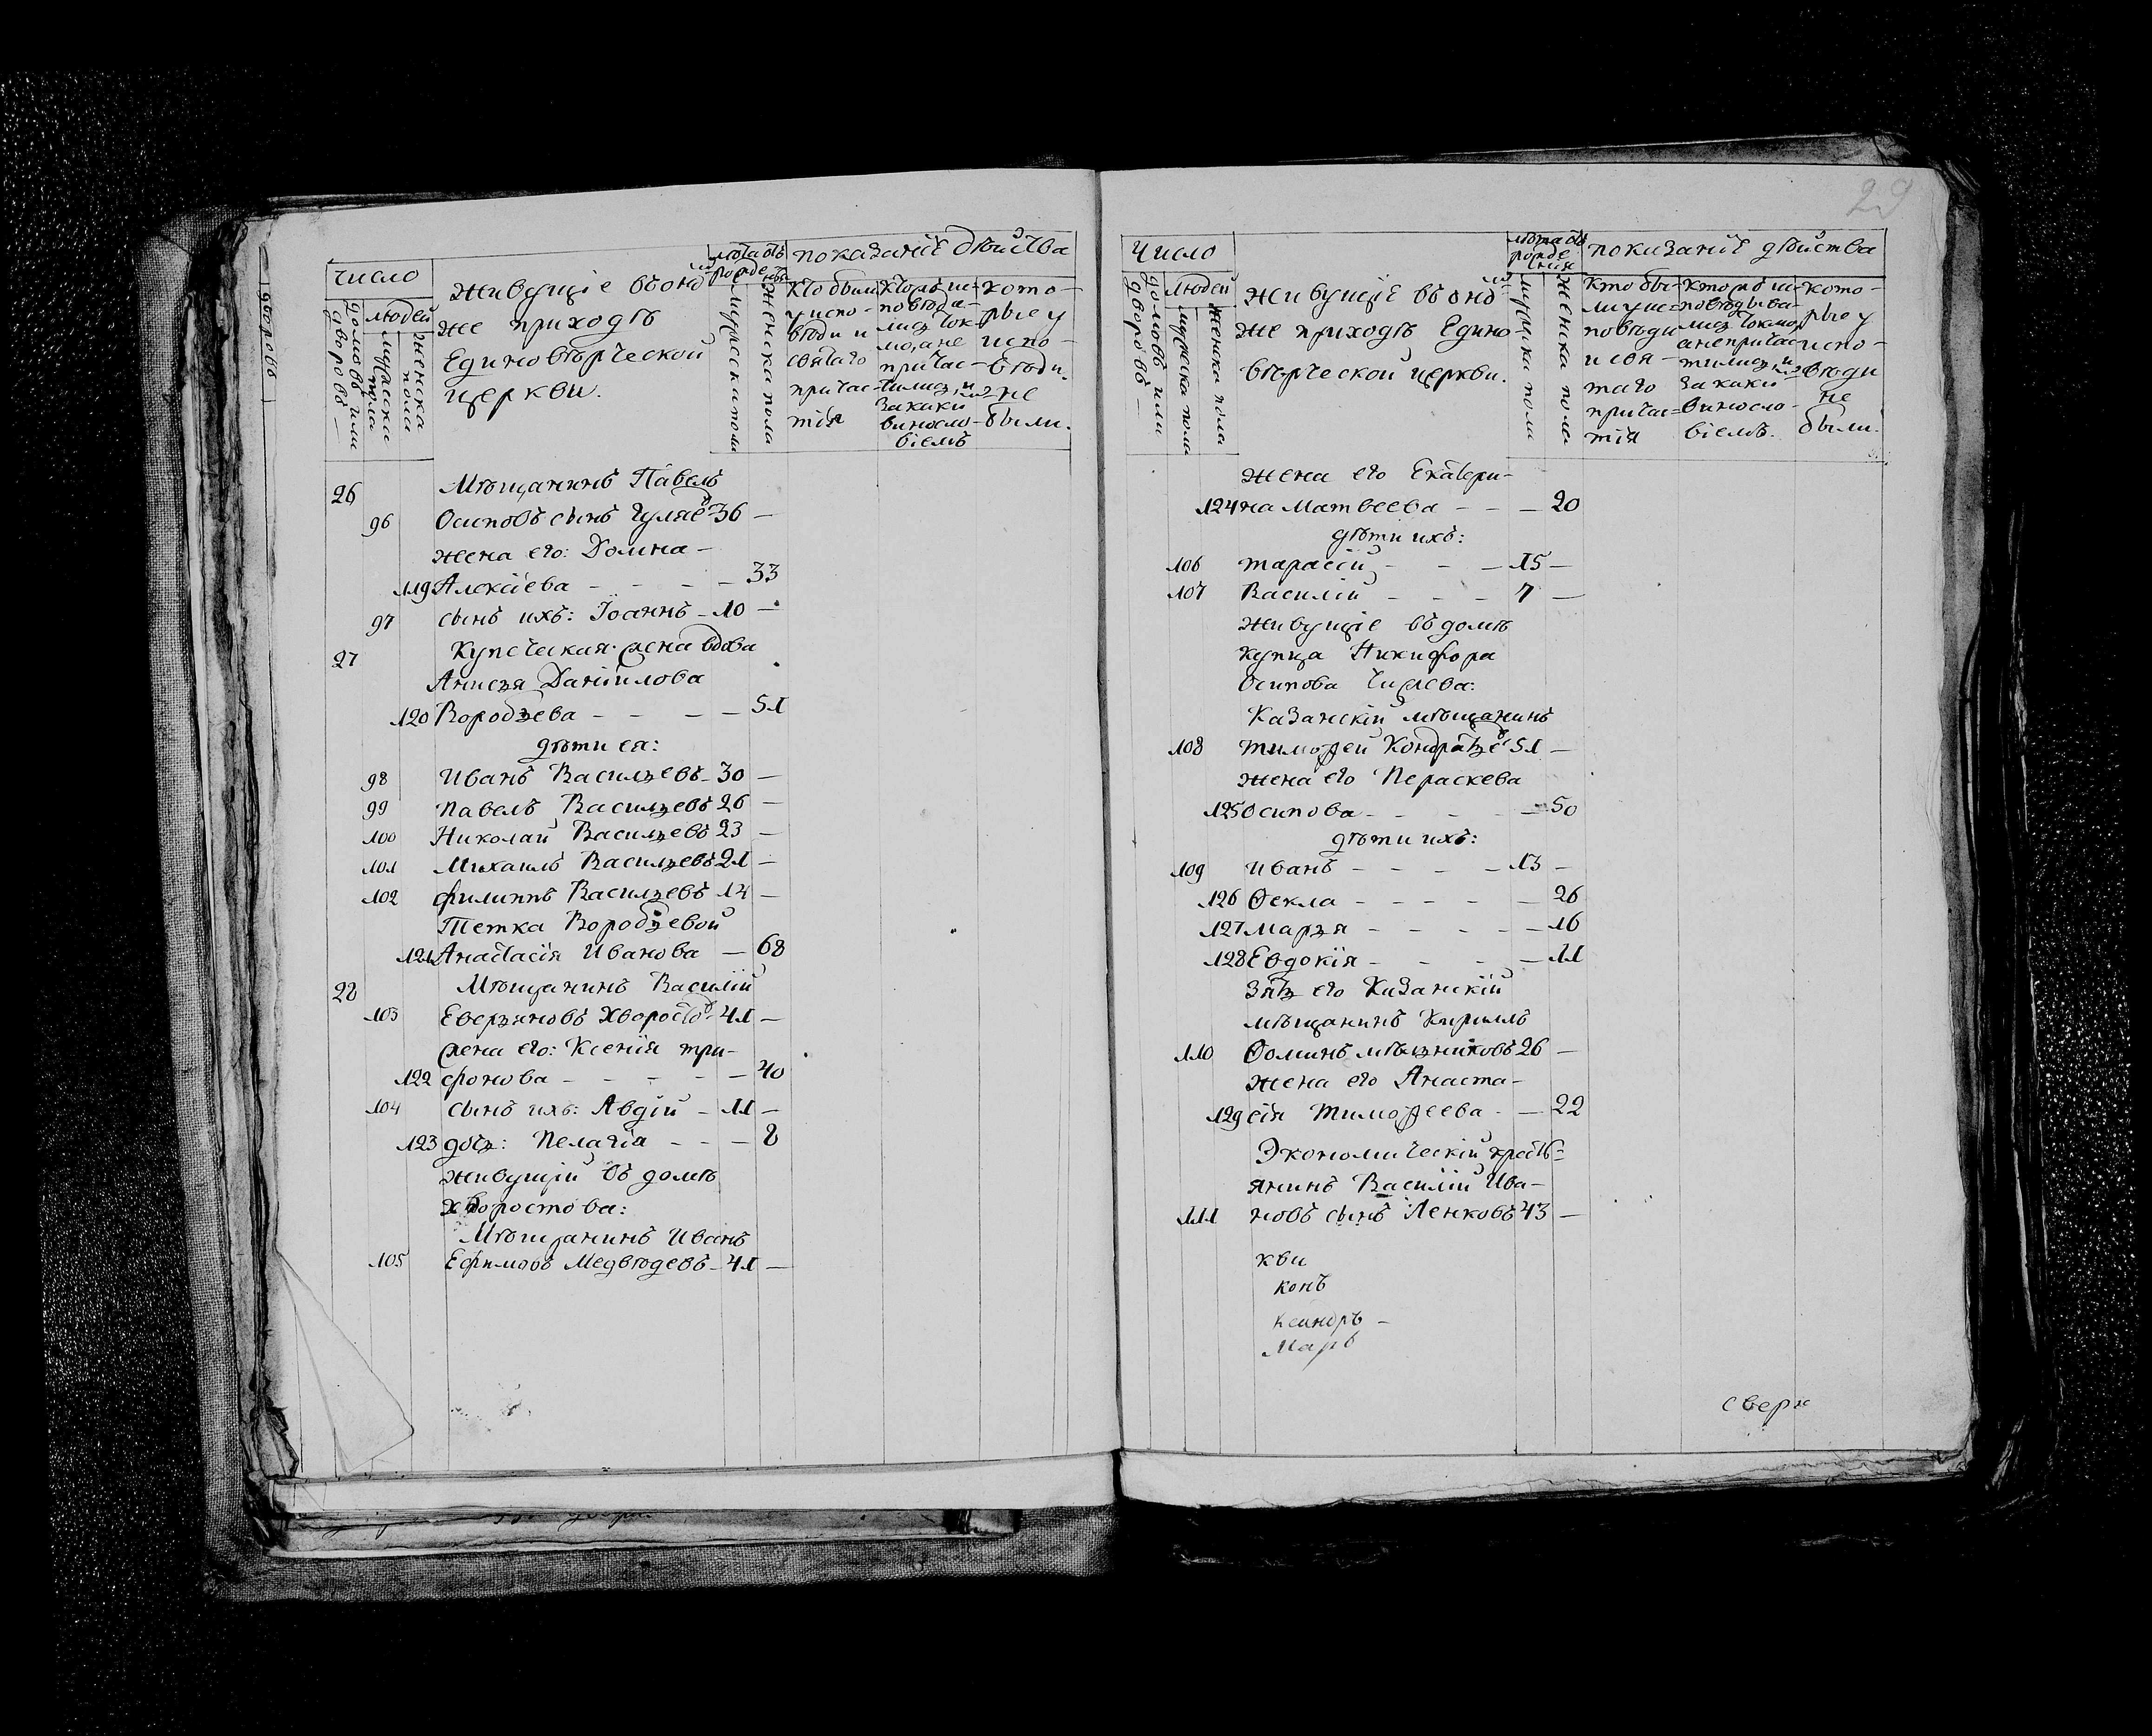 число
Живущіе въ оной
же приходѣ
Единовѣрческой
церкви.
лѣта отъ рожденія
показаніе дѣйства
домовъ или дворовъ
людей
мужеска пола
женска пола
мужеска пола
женска пола
Кто были
у испо-
вѣди и
святаго
причас-
тія
Которые ис-
повѣда-
лись ток-
мо, а не
причас-
тились, и
за какимъ
виносло-
віемъ
кото-
рые у
испо-
вѣди
не
были.
26 Мѣщанинъ Павелъ
96 Осиповъ сынъ Гуляевъ 36 —
жена его: Домна —
119 Алексіева — — — — 33
97 сынъ ихъ: Іоаннъ — 10 —
27 Купеческая жена вдова
Анисья Даніилова
120 Воробьева — — — — 51
дѣти ея:
98 Иванъ Васильевъ — 30 —
99 Павелъ Васильевъ 26 —
100 Николай Васильевъ 23 —
101 Михаилъ Васильевъ 21 —
102 Филиппъ Васильевъ 14 —
Тетка Воробьевой
121 Анастасія Иванова — 68
28 Мѣщанинъ Василій
103 Аверьяновъ Хворостовъ 41 —
жена его: Ксенія три-
122 фонова — — — — — 40
104 сынъ ихъ: Авдій — 11 —
123 дочь: Пелагіа — — — 8
живущій въ домѣ
Хворостова:
Мѣщанинъ Иванъ
105 Ефимовъ Медвѣдевъ — 41 —
29
Число
Живущіе въ оной
же приходѣ Едино-
вѣрческой церкви.
лѣта отъ рожденія
показаніе дѣйства
домовъ или дворовъ
людей
мужеска пола
женска пола
мужеска пола
женска пола
Кто бы-
ли у ис-
повѣди
и свя-
таго
причас-
тія
которые ис-
повѣдыва-
лись токмо,
а не причас-
тились, и
за какимъ
винослo-
віемъ.
кото-
рые у
испо-
вѣди
не
были.
жена его Екатери-
124 на Матвеева — — — 20
дѣти ихъ:
106 Тарасій — — — 15 —
107 Василій — — — 7 —
Живущіе въ домѣ
купца Никифора
Осипова Чижева:
Казанскій мѣщанинъ
108 Тимофей Кондратьевъ 51 —
жена его Пераскева
125 Осипова — — — — 50
дѣти ихъ:
109 Иванъ — — — — 13 —
126 Ѳекла — — — — — 26
127 Марья — — — — — 16
128 Евдокія — — — — 11
Зять его Казанскій
мѣщанинъ Кириллъ
110 Ѳоминъ Мѣшниковъ 26 —
жена его Анаста-
129 сія Тимофеева — — 22
Экономическій кресть-
янинъ Василій Ива-
111 новъ сынъ Ленковъ 43 —
кви
конъ
ксандръ —
Марѳ